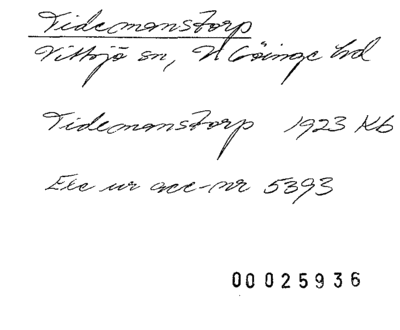 Tidemanstorp
Vittsjö sn, N Göinge hd
Tidemanstorp 1923 Kb
Exc ur acc-nr 5393
00025936